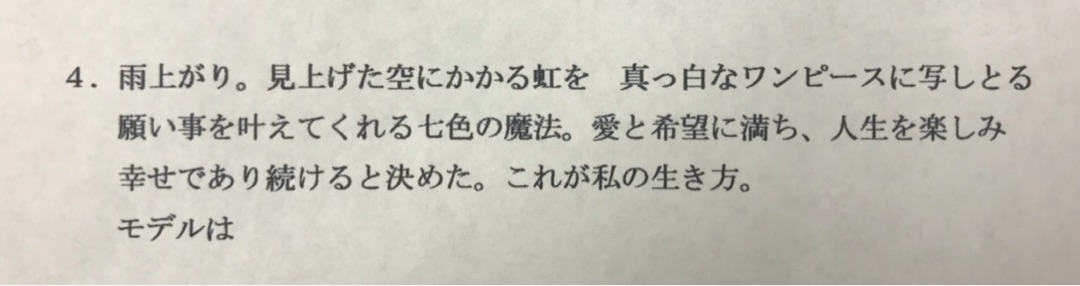 ４．雨上がり。見上げた空にかかる虹を　真っ白なワンピースに写しとる
願い事を叶えてくれる七色の魔法。愛と希望に満ち、人生を楽しみ
幸せであり続けると決めた。これが私の生き方。
モデルは